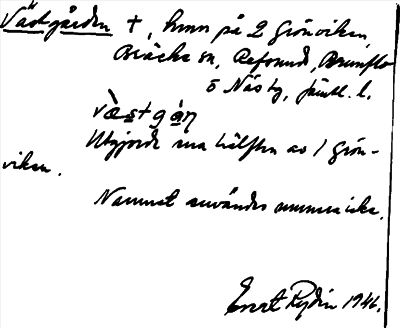 Västgården +, hmn på 2 Grönviken,
Bräcke sn, Refsunds, Brunflo
o Näs tg, Jämtl. l.
væstgáṇ
Utgjorde ena hälften av 1 Grön-
viken.
Namnet användes numera icke.
Ernst Rydin 1946.